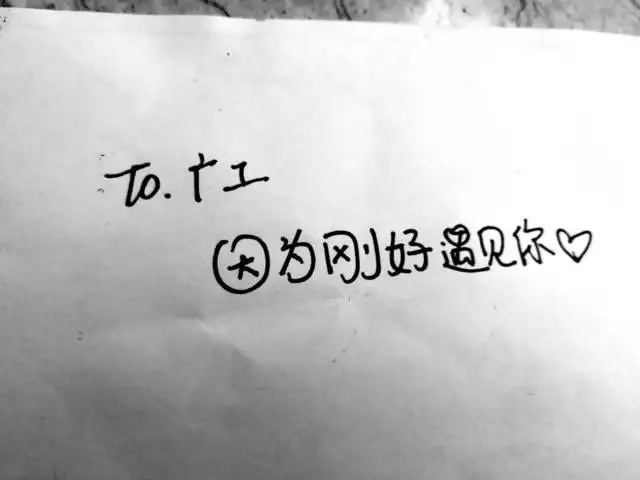 To.广工
因为刚好遇见你♡